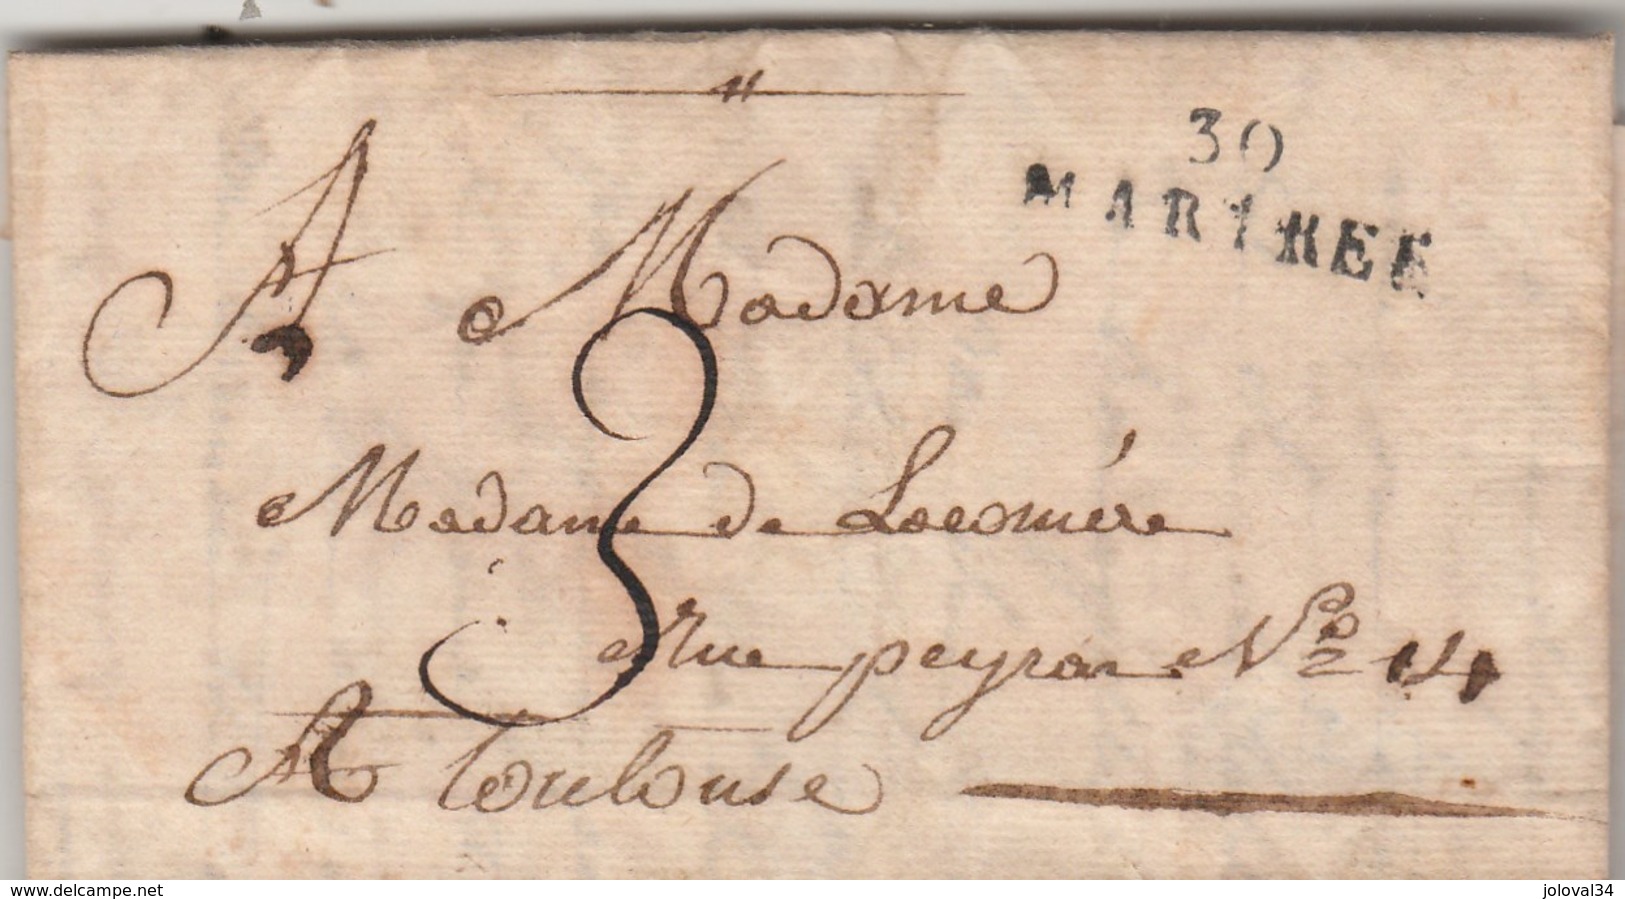 30
MARTRES
A Madame
3
Madame de
Rue peyras No 14
A toulouse
www.delcampe.net
joloval34